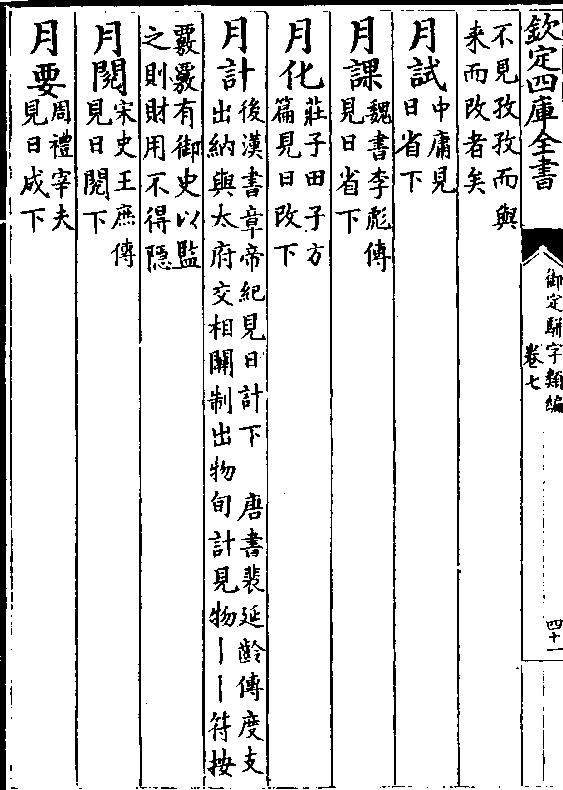 欽定四庫全書
御定駢字類編
卷七
四十一
不見孜孜而與
来而改者矣
月試
中庸見
日省下
月課
魏書李彪傳
見日省下
月化
莊子田子方
篇見日改下
月計
後漢書章帝紀見日計下 唐書裴延齡傳度支
出納與太府交相關制出物旬計見物丨丨符按
覈覈有御史以監
之則財用不得隱
月閱
宋史王庶傳
見日閱下
月要
周禮宰夫
見日成下